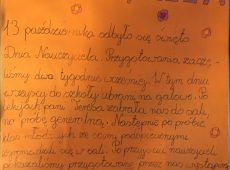 13 października odbyło się święto
Dnia Nauczyciela. Przygotowania zaczę-
liśmy dwa tygodnie wcześniej. W tym dniu
wszyscy do szkoły ubrani na galowo. Po
lekcjach pani zabrała nas do sali
na próbę generalną. Następnie po próbie
klas młodszych ze czym podopiecznymi
w sali. Po przyjściu nauczycieli
pokazaliśmy przygotowany przez nas występ